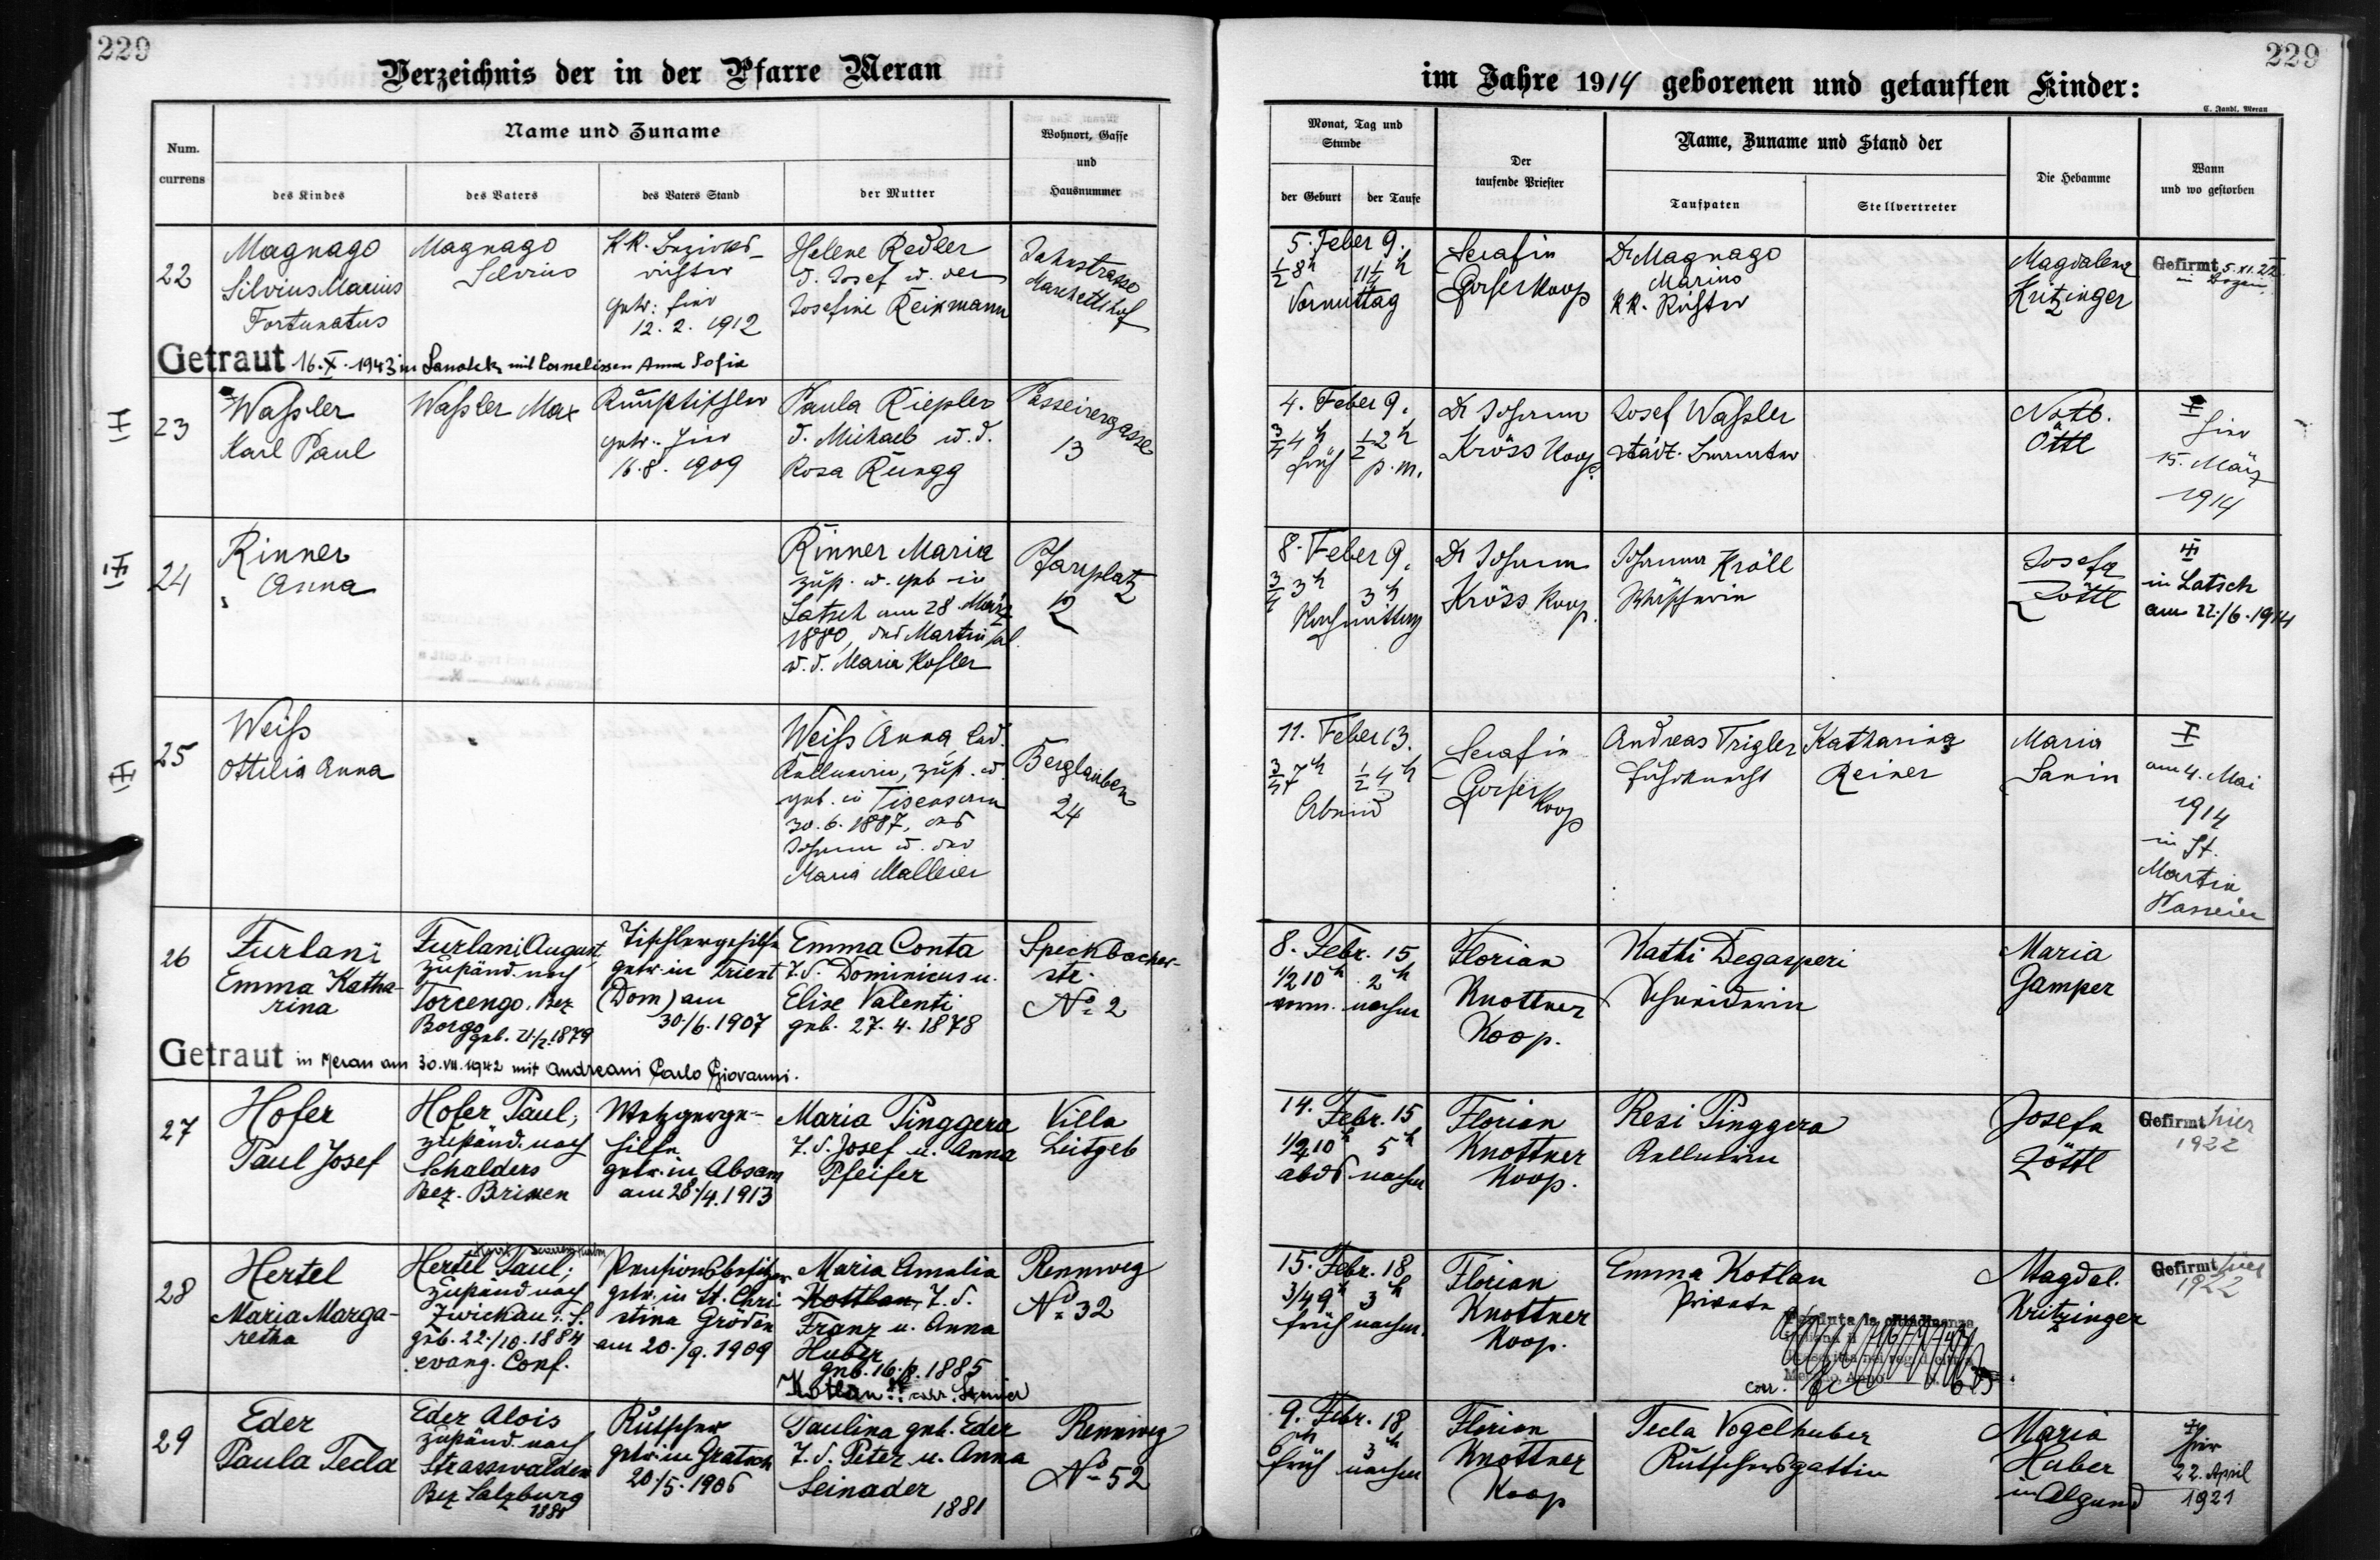 229
229
Verzeichnis der in der Pfarre Meran
im Jahre 1914 geborenen und getauften Kinder:
C. Jandl, Meran
Num.
currens
Name und Zuname
des Kindes
des Vaters
des Vaters Stand
der Mutter
Wohnort, Gasse
und
Hausnummer
Monat, Tag und
Stunde
der Geburt
der Taufe
Der
taufende Priester
Name, Zuname und Stand der
Taufpaten
Stellvertreter
Die Hebamme
Wann
und wo gestorben
22
Magnago
Silvius Marius
Fortunatus
Magnago
Silvius
K.K. Bezirks-
richter
getr: hier
12. 2. 1912
Helene Redler
d. Josef u. der
Josefine Reinmann
Jahnstrasse
Marchettihof
5. Feber 9.
½ 8h
11½ h
Vormittag
Serafin
Gorfer Koop
Dr Magnago
Marius
KK. Richter
Magdalena
Kritzinger
Gefirmt 5. XI. 22
in Bozen.
Getraut 16. X. 1943 in mit Cornelissen Anna Sofia
23
Waßler
Karl Paul
Waßler Max
Kunsttischler
getr. hier
16. 8. 1909
Paula Riepler
d. Michael u. d.
Rosa Rungg
Passeirergasse
13
4. Feber 9.
¾ 4 h
½ 2 h
früh
p. m.
Dr Johann
Kröss Koop.
Josef Waßler
städt. Beamter
Notb.
Öttl
hier
15. März
1914
24
Rinner
Anna
Rinner Maria
zust. u. geb in
Latsch am 28. März
1880, des Martin sel.
u. d. Maria Kofler
Pfarrplatz
12
8. Feber 9.
¾ 3 h
3 h
Nachmittag
Dr Johann
Kröss Koop.
Johanna Kröll
Wäscherin
Josefa
Zöttl
in Latsch
am 22./6. 1914
25
Weiß
Ottilia Anna
Weiß Anna, led.
Kellnerin, zust. u.
geb. in Tisens am
30. 6. 1887, des
Johann u. der
Maria Malleier
Berglauben
24
11. Feber 13.
¾ 7 h
½ 4 h
Abend
Serafin
Gorfer Koop
Andreas Trigler
Fuhrknecht
Katharina
Reiner
Maria
Sanin
am 4. Mai
1914
in St.
Martin
Passeier
26
Furlani
Emma Katha-
rina
Furlani August,
zuständ. nach
Torcengo. Bez
Borgo
Tischlergehilfe
getr. in Trient
(Dom) am
30./6. 1907
Emma Conta
T. d. Dominicus u.
Elise Valenti
geb. 27. 4. 1878
Speckbacher-
str.
No 2
8. Febr. 15
1/2 10 h 2 h
vorm. nachm
Florian
Knottner
Koop.
Kathi Degasperi
Schneiderin
Maria
Gamper
Getraut in Meran am 30. VII. 1942 mit Andreani Carlo Giovanni.
27
Hofer
Paul Josef
Hofer Paul,
zuständ. nach
Schalders
Bez. Brixen
Metzgerge-
hilfe
getr. in Absam
am 28./4. 1913
Maria Pinggera
T. d. Josef u. Anna
Pfeifer
Villa
Leitgeb
14. Febr. 15
1/2 10 h 5 h
abds. nachm
Florian
Knottner
Koop.
Resi Pinggera
Kellnerin
Josefa
Zöttl
Gefirmt hier
1922
28
Hertel
Maria Marga-
retha
Hertel Paul;
zuständ. nach
Zwickau i. S.
geb. 22./10. 1884
evang. Conf.
Pensionsbesitzer
getr. in St. Chri
stina Gröden
am 20./9. 1909
Maria Amalia
Kottlan, T. d.
Franz u. Anna
Huber
Kotlan
Rennweg
No 32
15. Febr. 18
3/4 9 h 3 h
früh nachm.
Florian
Knottner
Koop.
Emma Kotlan
Private
corr.
Magdal.
Kritzinger
Gefirmt hier
1922
29
Eder
Paula Tecla
Eder Alois
zuständ. nach
Strasswalden
Bez Salzburg
1881
Kutscher
getr. in Gratsch
20./5. 1906
Paulina geb. Eder
T. d. Peter u. Anna
Leinader
1881
Rennweg
No 52
9. Febr. 18
6 h 3 h
früh nachm
Florian
Knottner
Koop
Tecla Vogelhuber
Kutschersgattin
Maria
Huber
in Algund
hier
22. April
1921